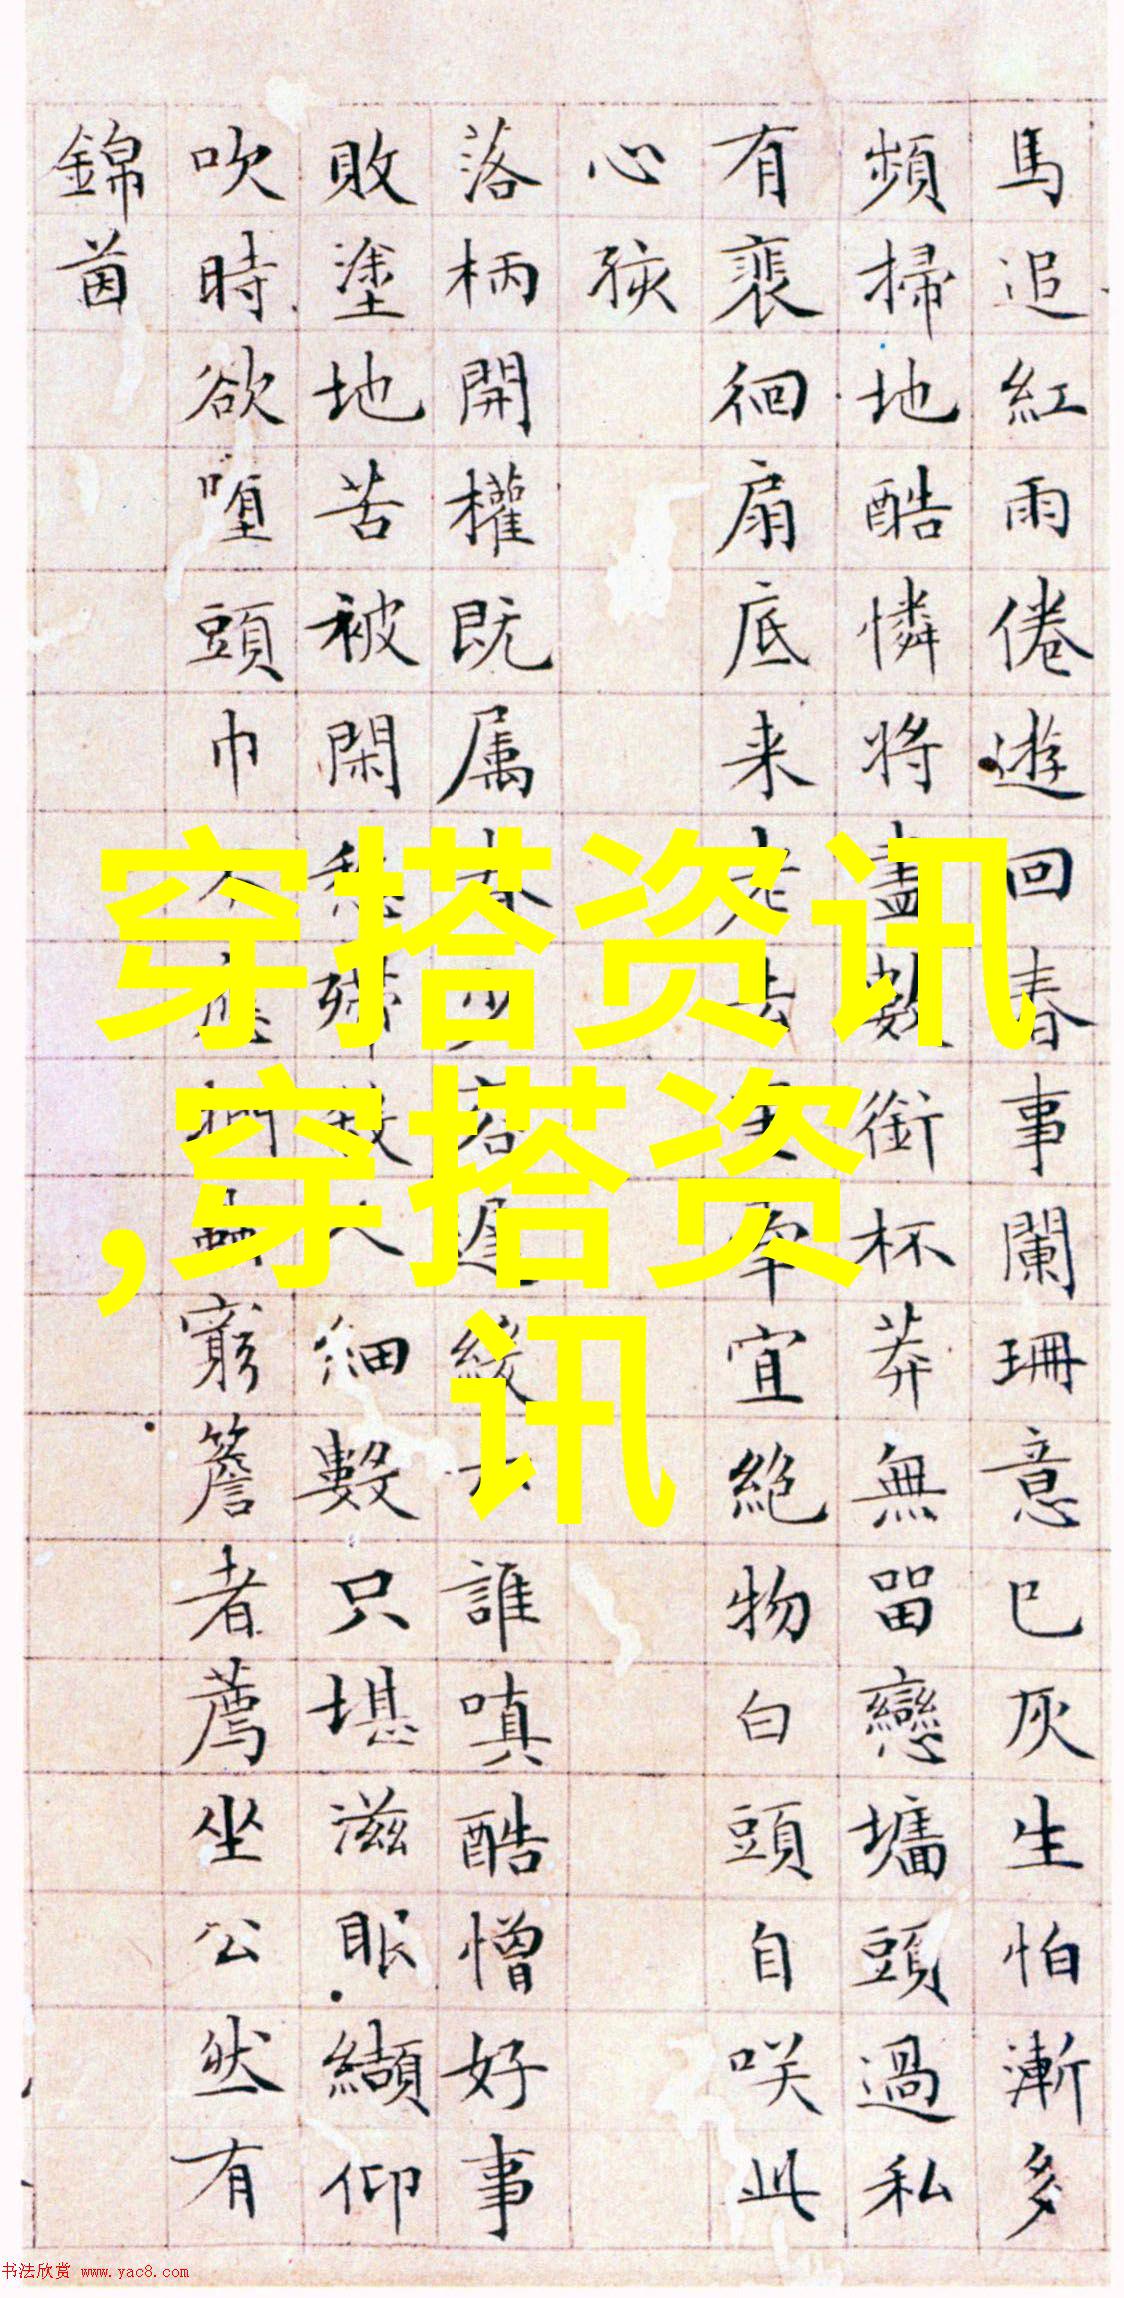 馬追紅雨倦遊回春事闌珊意已灰生怕漸多
頻掃地酷憐將盡數銜杯莽無留戀墻頭過私
有裴徊扇底来老去宜絶物白頭自咲此
心孩
落柄開權既属春少君遲緩誰嗔酷憎好事
敗塗地苦被閑愁殢殺人細數只堪滋眼纈仰
吹時欲堕頭巾不應窮簷者薦坐公然有
錦茵
穿搭资讯
,穿搭资
讯
书法欣赏 www.yac8.com